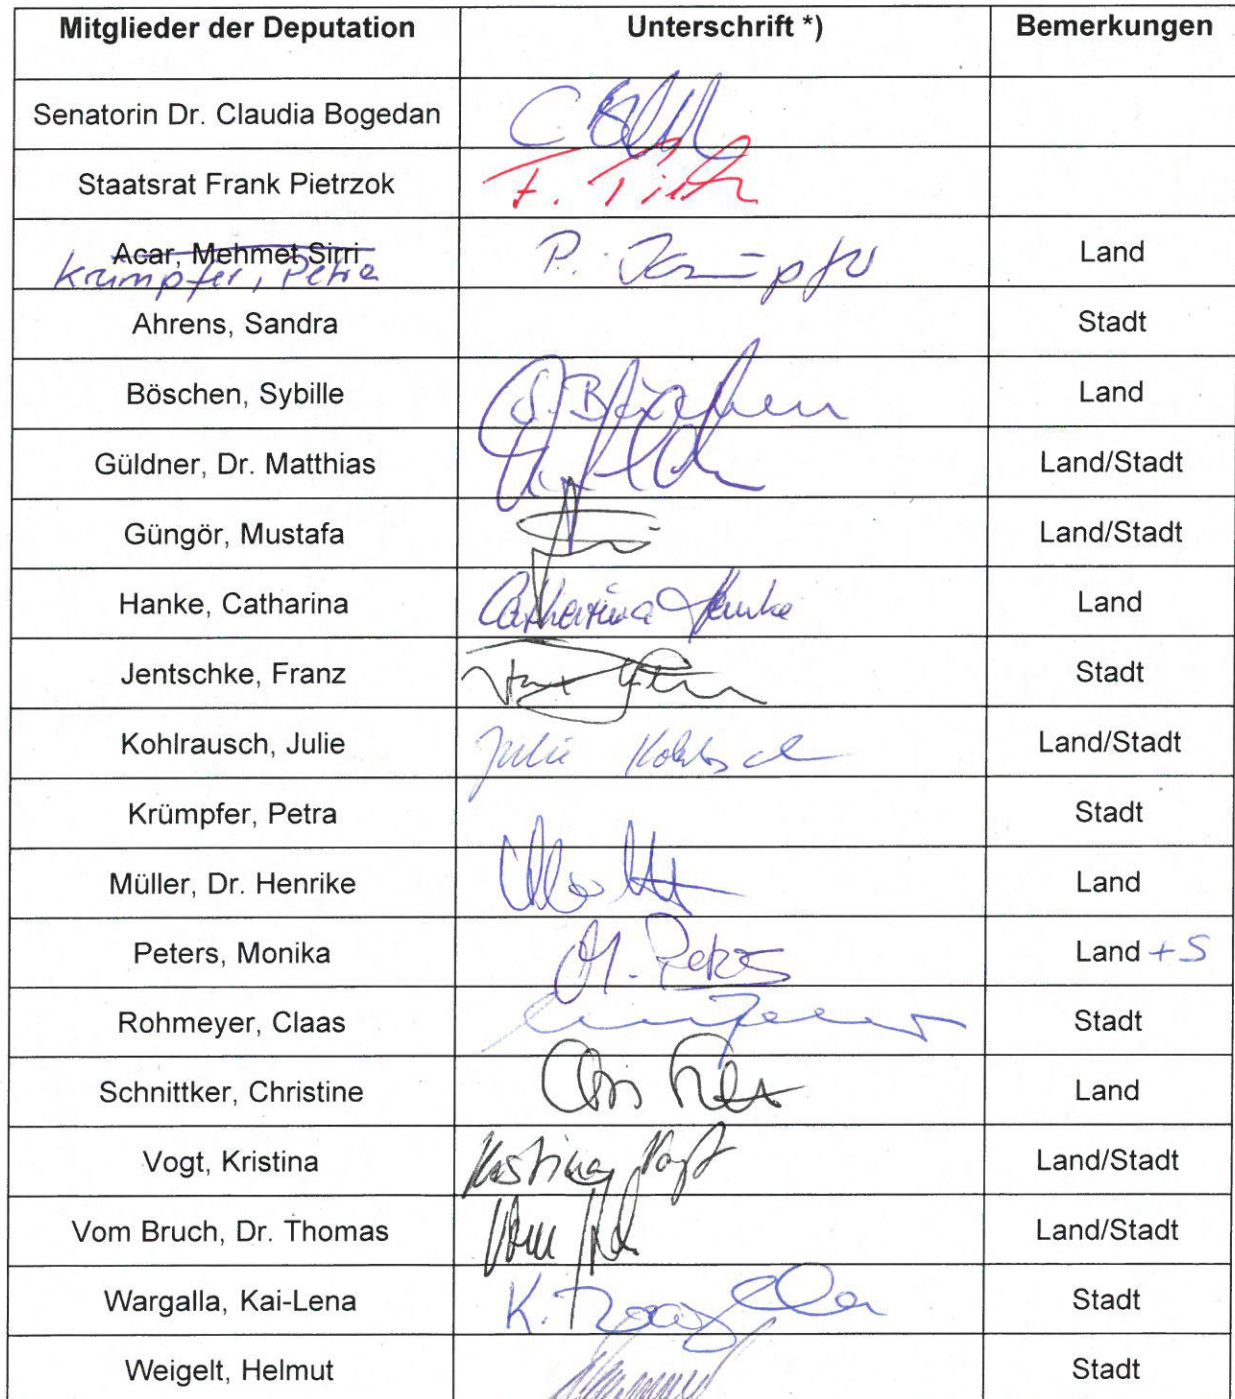 Mitglieder der Deputation Unterschrift *) Bemerkungen
Senatorin Dr. Claudia Bogedan
Staatsrat Frank Pietrzok
Acar, Mehmet Sirri P. Krümpfer Land
Krümpfer, Petra
Ahrens, Sandra Stadt
Böschen, Sybille S. Böschen Land
Güldner, Dr. Matthias Land/Stadt
Güngör, Mustafa Land/Stadt
Hanke, Catharina Catharina Hanke Land
Jentschke, Franz Stadt
Kohlrausch, Julie Julie Land/Stadt
Krümpfer, Petra Stadt
Müller, Dr. Henrike Land
Peters, Monika M. Peters Land + S
Rohmeyer, Claas Stadt
Schnittker, Christine Land
Vogt, Kristina Kristina Vogt Land/Stadt
Vom Bruch, Dr. Thomas Land/Stadt
Wargalla, Kai-Lena K. Wargalla Stadt
Weigelt, Helmut Stadt